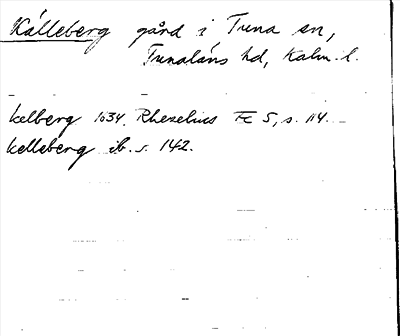 Källeberg gård i Tuna sn,
Tunaläns hd, Kalm. l.
kelberg 1634. Rhezelius Fc 5, s. 114.
kelleberg ib. s. 142.